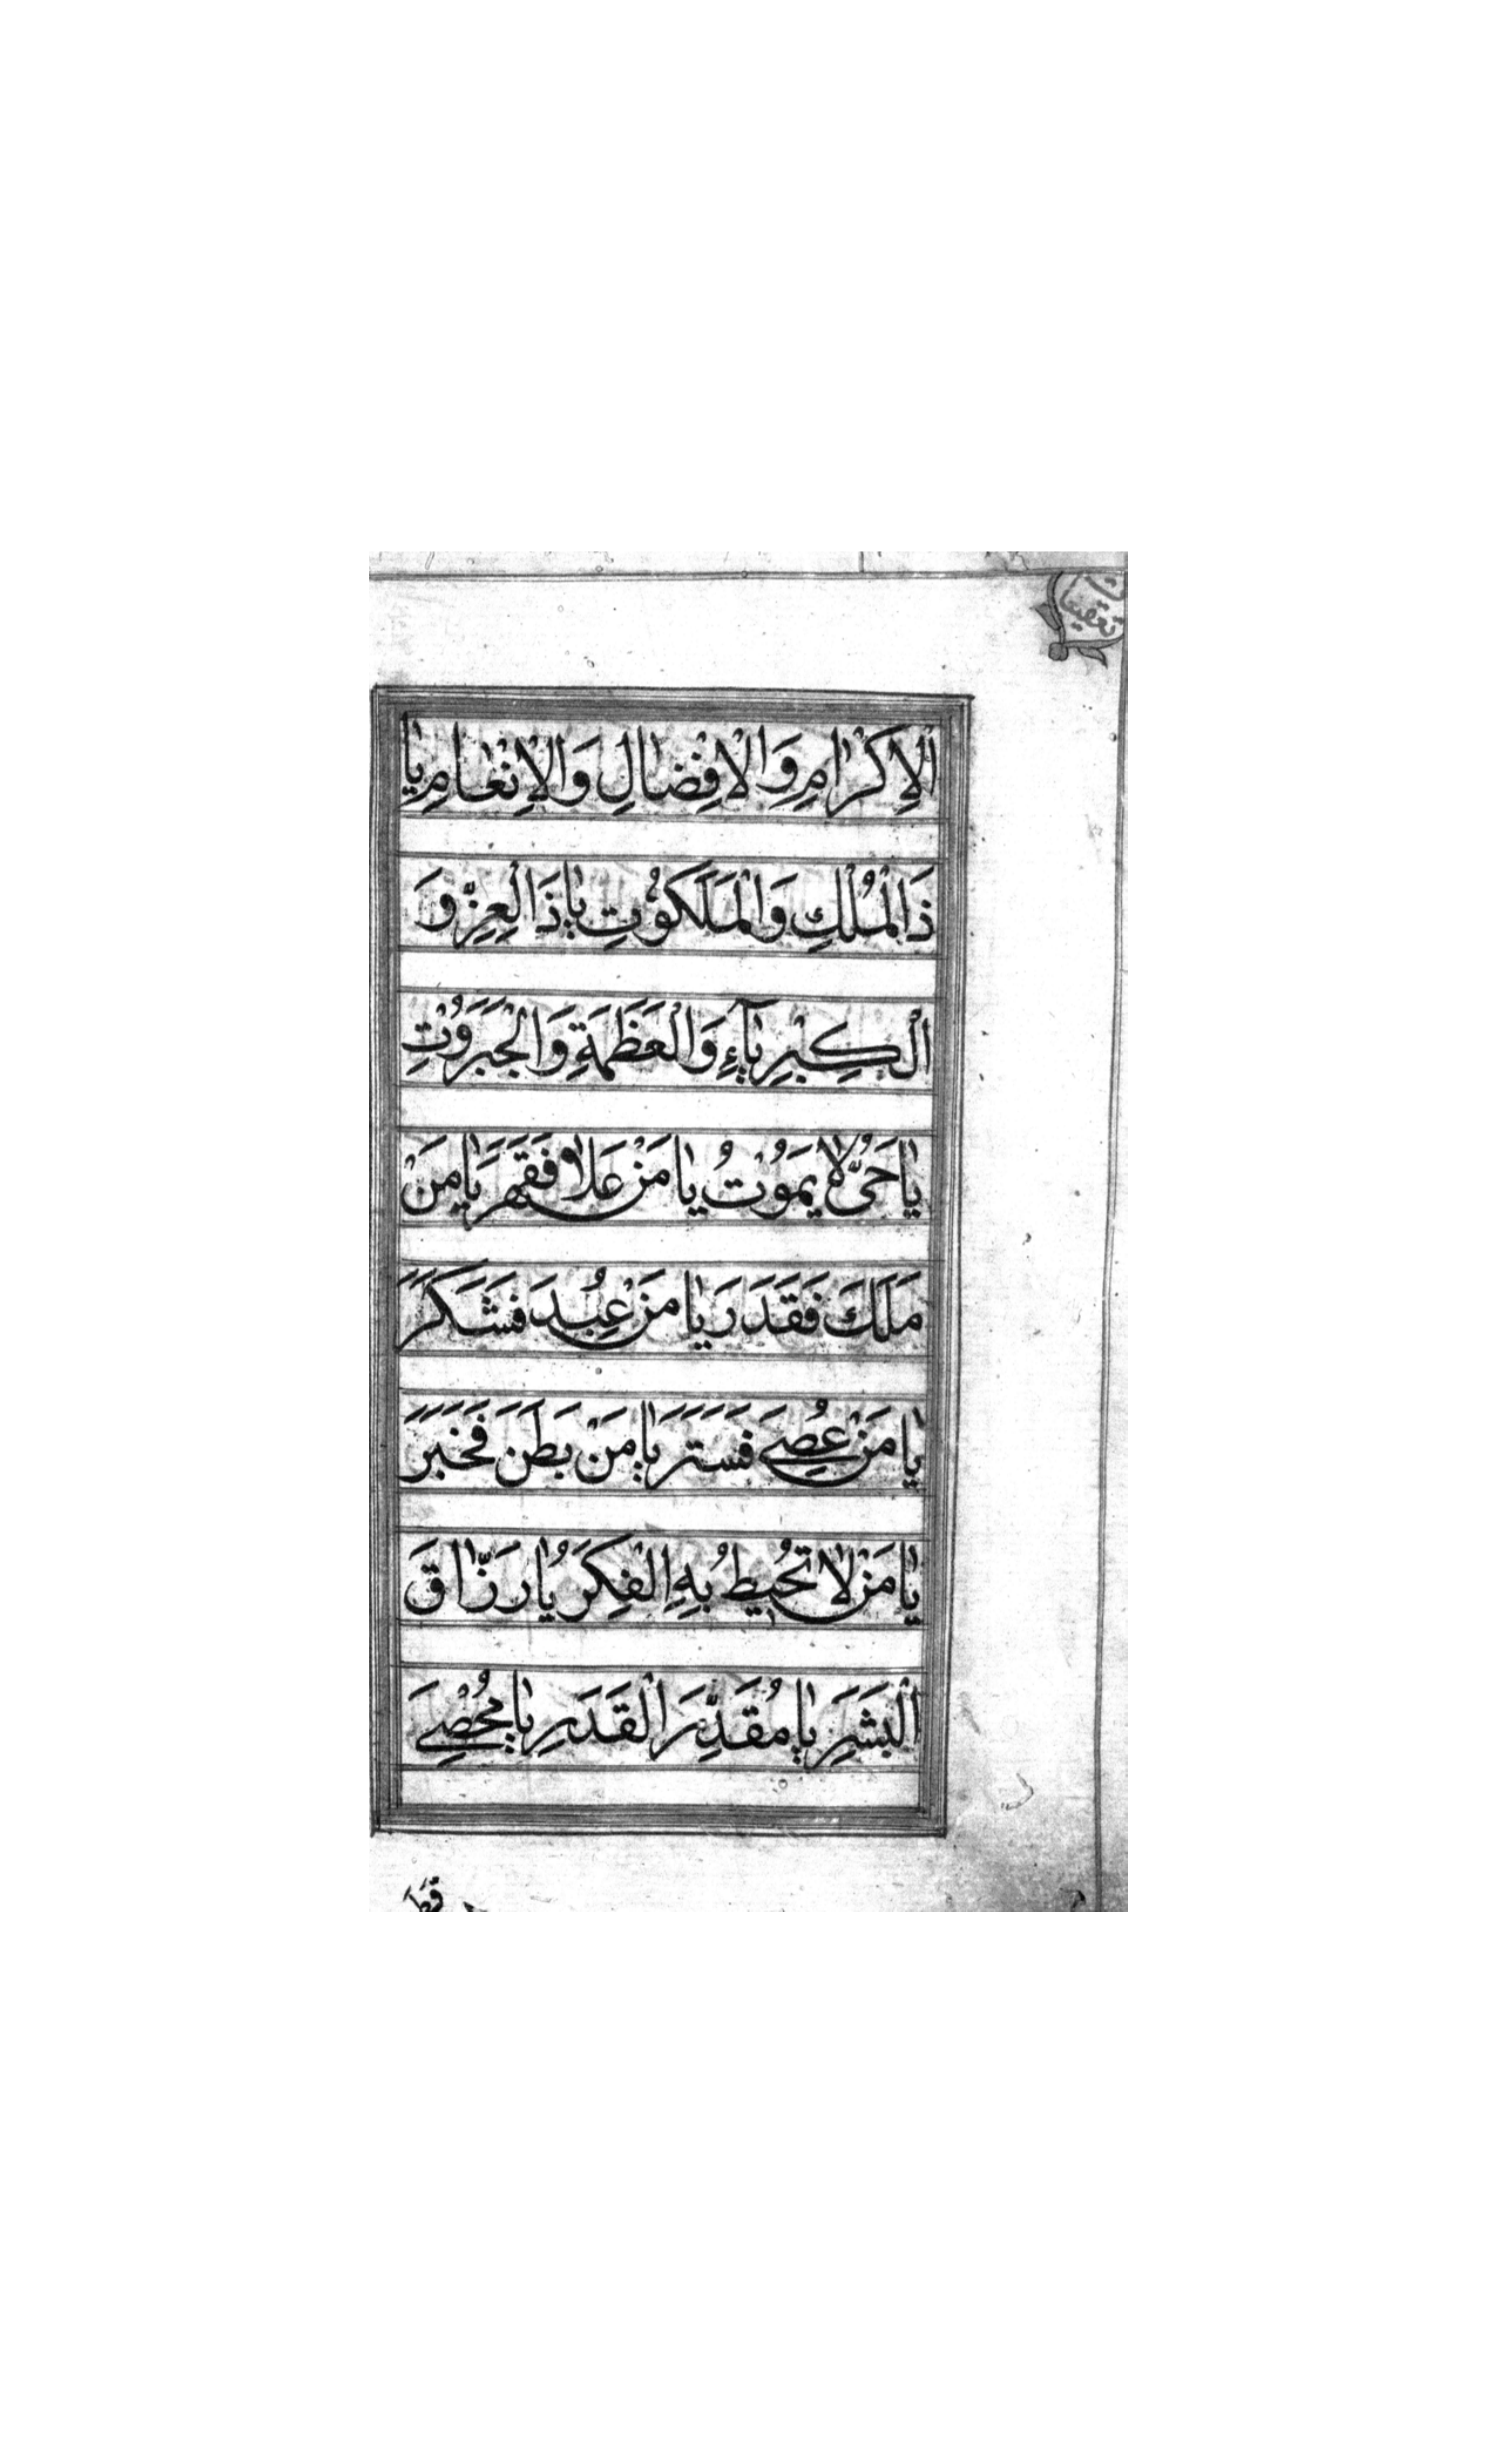 تعقیبات
الْاِكْرٰامِ وَالْاِفْضٰالِ وَالْاِنْعٰامِ يٰا
ذَا الْمُلْكِ وَالْمَلَكُوْتِ يٰا ذَا الْعِزِّ وَ
الْكِبْرِيٰآءِ وَالْعَظَمَةِ وَالْجَبَرَوُتِ
يٰا حَىُّ لٰا يَمَوُتُ يٰا مَنْ عَلٰا فَقَهَرَ يٰا مَنْ
مَلَكَ فَقَدَرَ يٰا مَنْ عُبِدَ فَشَكَرَ
يٰا مَنْ عُصِىَ فَسَتَرَ يٰا مَنْ بَطَنَ فَخَبَرَ
يٰا مَنْ لٰا تُحيطُ بِهِ الْفِكَرُ يٰا رَزّٰاقَ
الْبَشَرِ يٰا مُقَدِّرَ الْقَدَرِ يٰا مُحْصِىَ
قطر